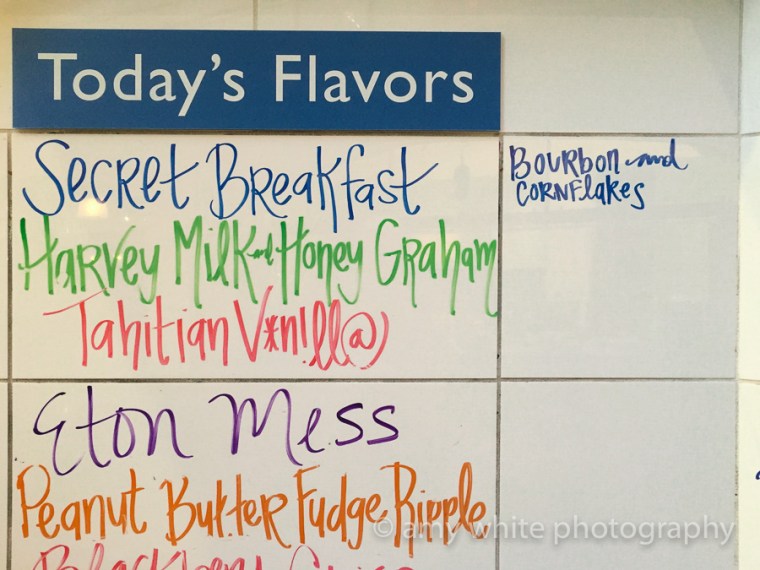 Today's Flavors
Secret Breakfast
Bourbon and
Cornflakes
Harvey Milk and Honey Graham
Tahitian V*n!ll@)
Eton Mess
Peanut Butter Fudge Ripple
© amy white photography